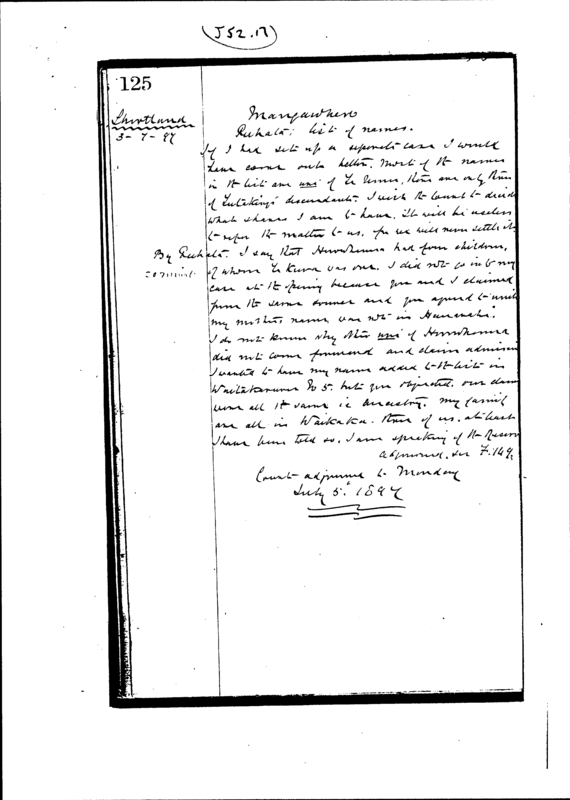 J52.17
125
Shortland
3-7-97
Mangawhero
list of names.
If I had set up a separate case I would
have come out better. Most of the names
in the list are uri of Te , there are only three
of descendants. I wish the Court to decide
what shares I am to have. It will be useless
to refer the matter to us, for we will never settle it
By I say that had four children,
of whom was one. I did not go into my
case at the opening because you and I claimed
from the same source and you agreed to
my mother's name was not in
I do not know why other uri of
did not come forward and claim
I wanted to have my name added to the list in
No 5. but you objected. our
were all the same ie ancestry. my family
are all in Waikaka. three of us. at least
I have been told so. I am speaking of the
adjourned. see F.149.
Court adjourned to Monday
July 5. 1897